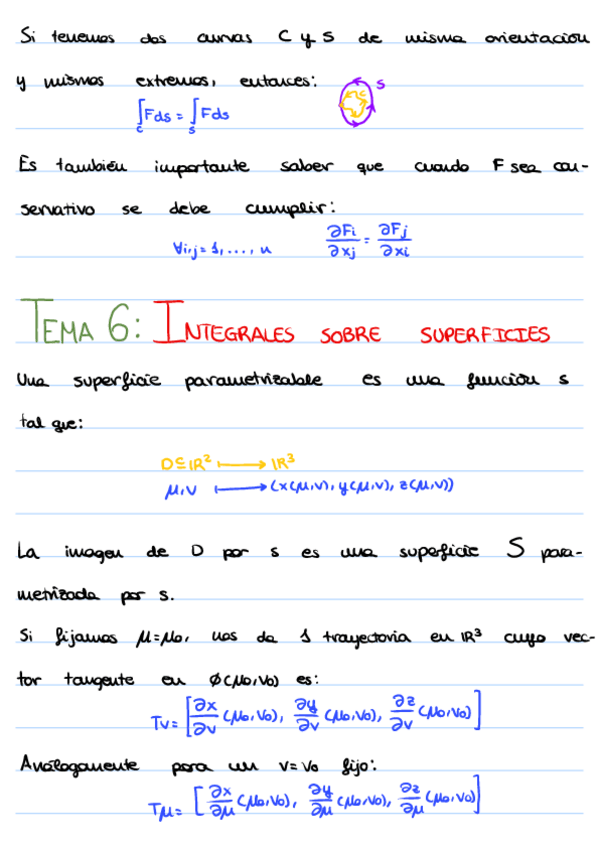 Si tenemos dos curvas C y S de misma orientación
y mismos extremos, entonces:
∫_C F ds = ∫_S F ds
C S
Es también importante saber que cuando F sea con-
servativo se debe cumplir:
∀i,j = 1, ..., n ∂Fi/∂xj = ∂Fj/∂xi
TEMA 6: INTEGRALES SOBRE SUPERFICIES
Una superficie parametrizable es una función s
tal que:
D⊆IR² ⟼ IR³
μ,v ⟼ (x(μ,v), y(μ,v), z(μ,v))
La imagen de D por s es una superficie S para-
metrizada por s.
Si fijamos μ=μ₀, nos da 1 trayectoria en IR³ cuyo vec-
tor tangente en ϕ(μ₀,v₀) es:
Tv = [∂x/∂v (μ₀,v₀), ∂y/∂v (μ₀,v₀), ∂z/∂v (μ₀,v₀)]
Análogamente para un v=v₀ fijo:
Tμ = [∂x/∂μ (μ₀,v₀), ∂y/∂μ (μ₀,v₀), ∂z/∂μ (μ₀,v₀)]